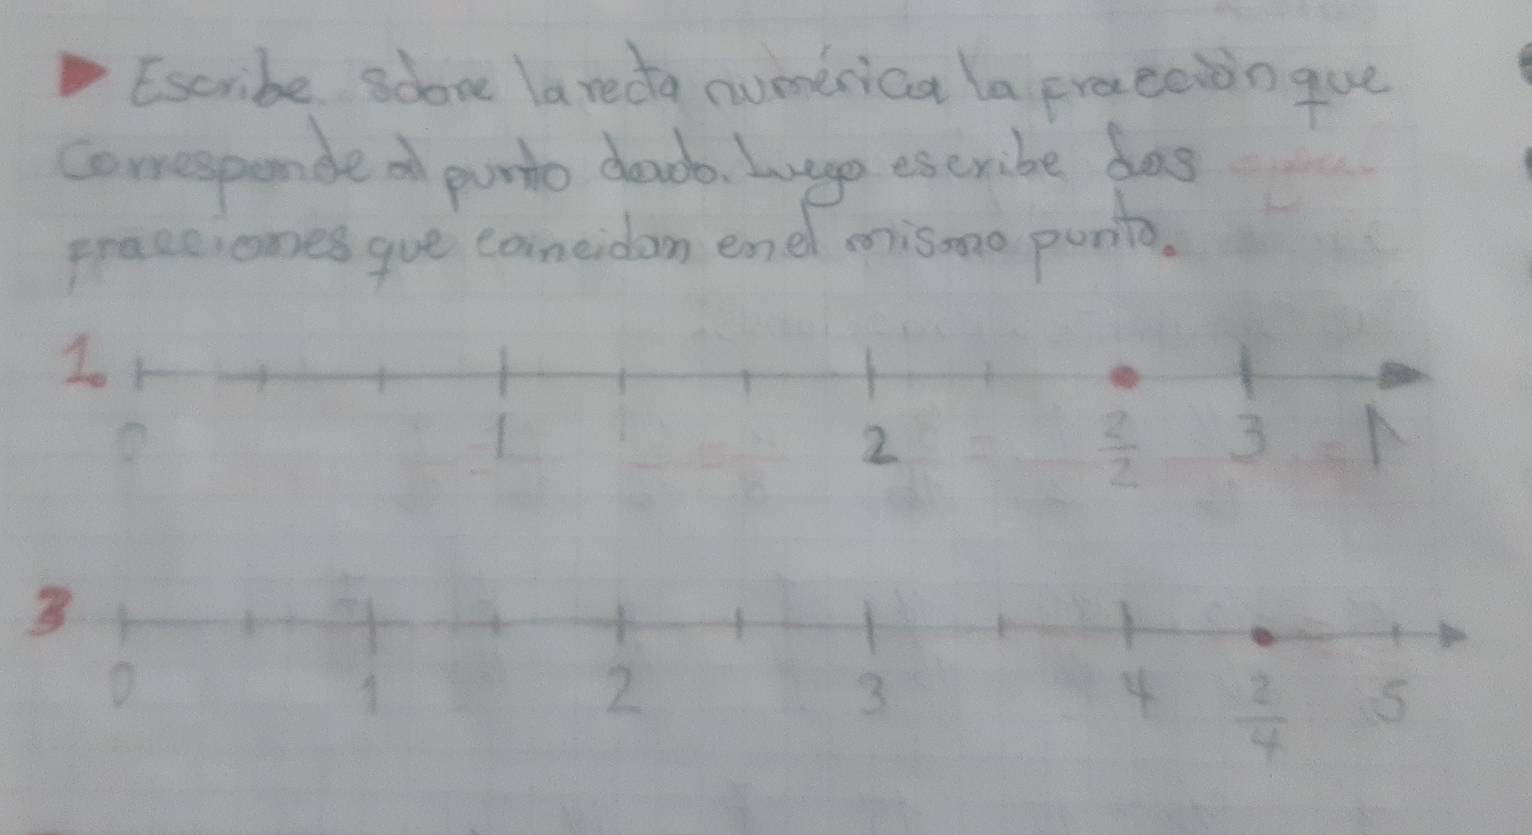 Escribe sobre la recta numérica la fracción que
corresponde al punto dado. Luego escribe dos
fracciones que coincidan en el mismo punto.
1.
0 1 2 2/2 3
3
0 1 2 3 4 2/4 5